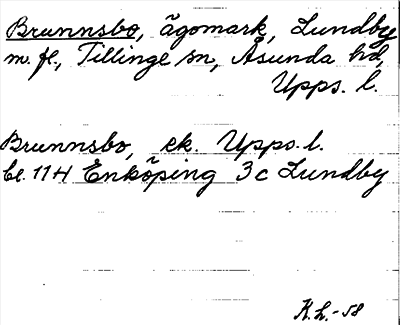 Brunnsbo, ägomark, Lundby
m. fl., Tillinge sn, Åsunda hd,
Upps. l.
Brunnsbo, ek. Upps. l.
bl. 114 Enköping 3c Lundby
K.L.-58